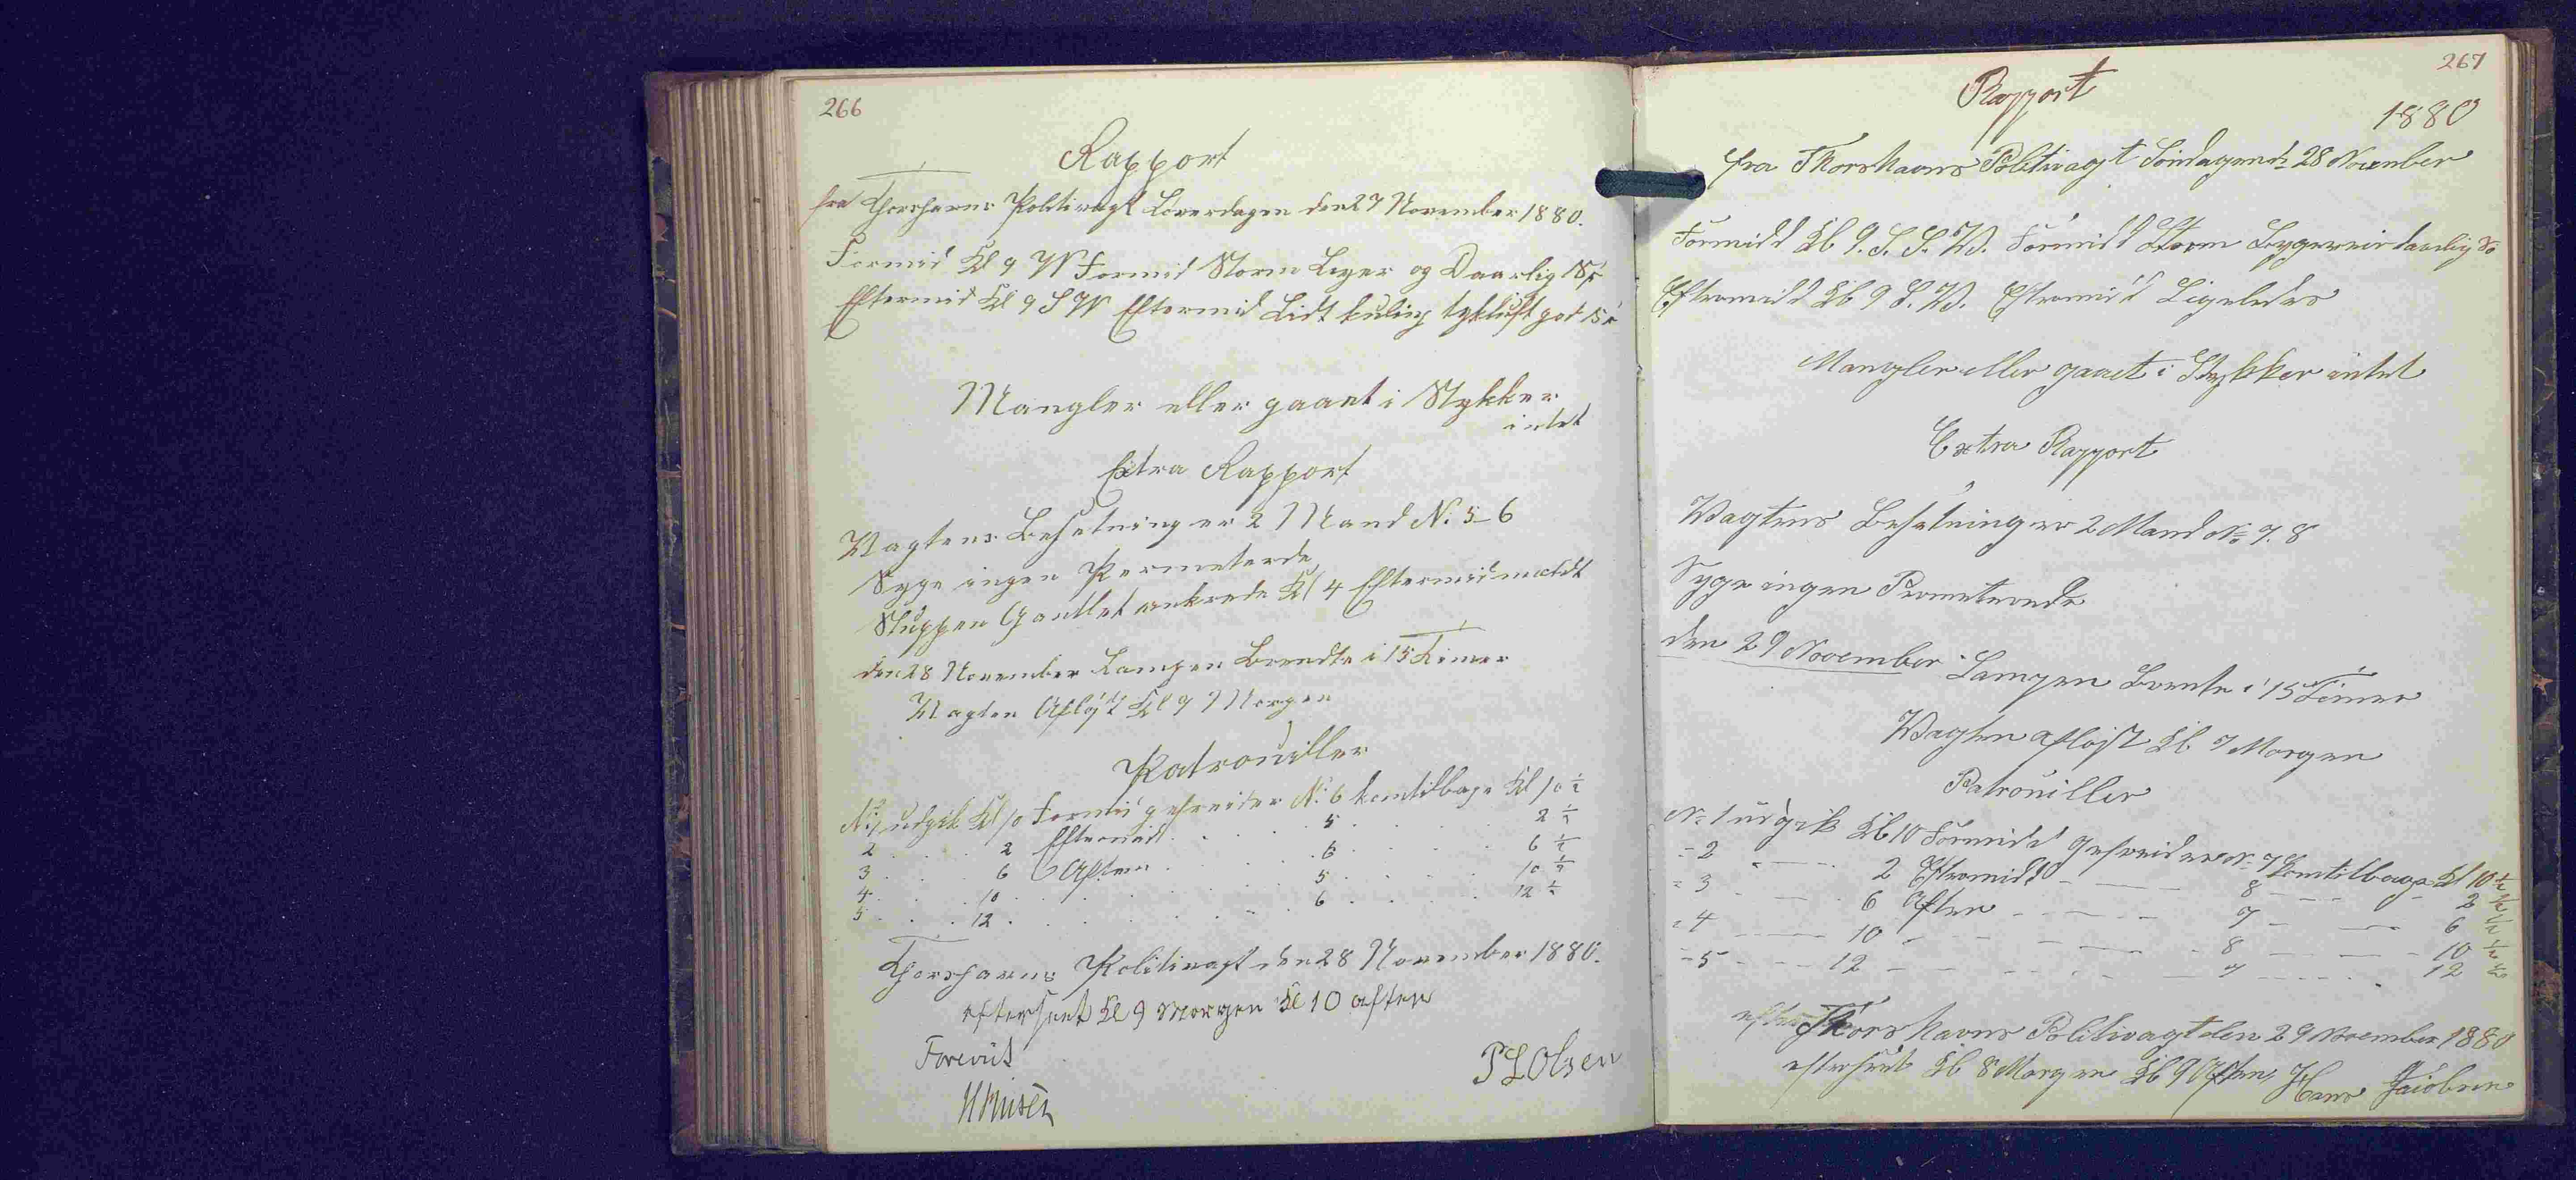 266
Rapport
fra Thorshavns Politivagt Løverdagen den 27 November 1880.
Formid Kl 9 W Formid Storm Byer og Daarlig Sø
Eftermid Kl 9 S W Eftermid Lidt kuling tykluft god Sø
Mangler eller gaaet i Stykker
intet
Extra Rapport
Vagtens Besetning er 2 Mand N: 5-6
Syge ingen Permeterde
Sluppen Gantlet ankrede Kl 4 Eftermid
den 28 November Lampen Brendte i 15 Timer
Vagten Afløst Kl 9 Morgen
Patrouiller
N: 1 udgik Kl 10 Formid gefreider N: 6 kom tilbage Kl 10 ½
2 . . . 2 Eftermid . . . 5 . . . 2 ½
3 . . . 6 Aften . . . 6 . . . 6 ½
4 . . . 10 . . . 5 . . . 10 ½
5 . . . 12 . . . 6 . . . 12 ½
Thorshavns Politivagt den 28 November 1880.
efterseet Kl 9 Morgen Kl 10 aften
Forevist
P L Olsen
267
Rapport
1880
fra Thorshavns Politivagt Søndagen d: 28 November
Formidd Kl 9. S. S. W. Formidd Storm Bygeveir daarlig Sø
Eftermidd Kl 9 S. W. Eftermidd Ligeledes
Mangler eller gaaet i Stykker intet
Extra Rapport
Vagtens Besetning er 2 Mand No 7. 8
Syge ingen Permeterede
den 29 November Lampen Brente i 15 Timer
Vagten afløst Kl 9 Morgen
Patrouiller
No 1 udgik Kl 10 Formidd Gefreider No 7 kom tilbage Kl 10 ½
= 2 - - - 2 Eftermidd - - - 8 - - - 2 ½
= 3 - - - 6 Aften - - - 7 - - - 6 ½
= 4 - - - 10 - - - 8 - - - 10 ½
= 5 - - - 12 - - - 7 - - - 12 ½
Thorshavns Politivagt den 29 November 1880
efterseet Kl 8 Morgen Kl 9 Aften Hans Jacobsen